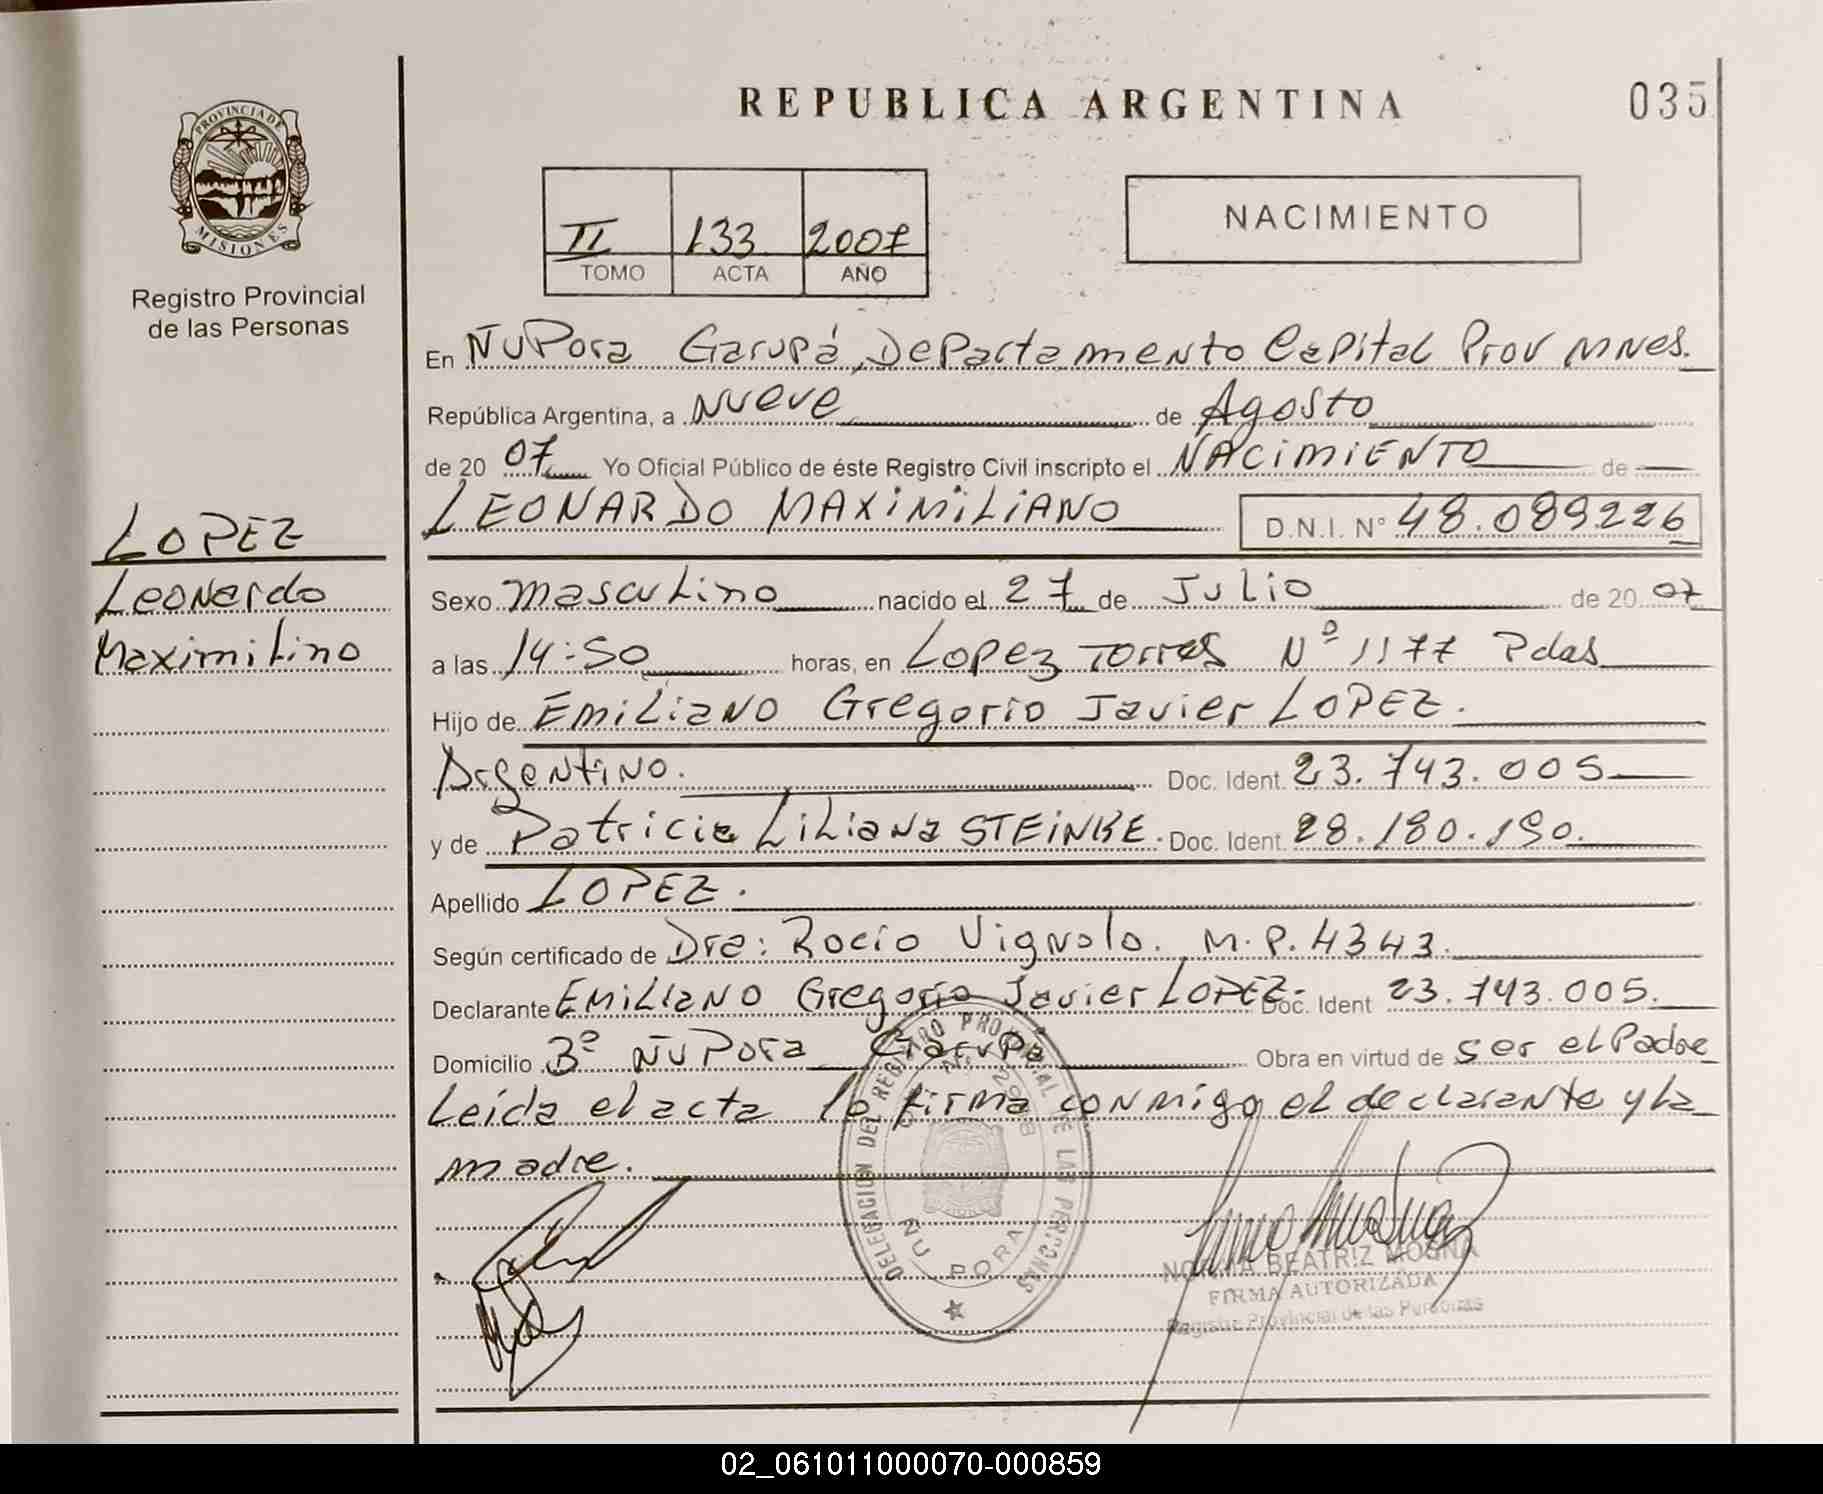 PROVINCIA DE
MISIONES
Registro Provincial
de las Personas
LOPEZ
Leonardo
Maximilino
REPUBLICA ARGENTINA
035
II 133 2007
TOMO ACTA AÑO
NACIMIENTO
En ÑuPora Garupá, Departamento Capital Prov MNes.
República Argentina, a Nueve de Agosto
de 20 07 Yo Oficial Público de éste Registro Civil inscripto el NACIMIENTO de
LEONARDO MAXIMILIANO D.N.I. N° 48.089.226
Sexo masculino nacido el 27 de Julio de 20 07
a las 14:50 horas, en Lopez Torres Nº 1177 Pdas
Hijo de Emiliano Gregorio Javier LOPEZ.
Argentino. Doc. Ident. 23.743.005
y de Patricia Liliana STEINKE. Doc. Ident. 28.180.190.
Apellido LOPEZ.
Según certificado de Dra: Rocio Vignolo. M.P. 4343.
Declarante Emiliano Gregorio Javier LOPEZ. Doc. Ident 23.743.005.
Domicilio Bº ÑuPora Garupa Obra en virtud de ser el Padre
Leída el acta la firma conmigo el declarante y la
madre.
DELEGACION DEL REGISTRO PROVINCIAL DE LAS PERSONAS
ÑU PORA
NORMA BEATRIZ MOSNA
FIRMA AUTORIZADA
Registro Provincial de las Personas
02_061011000070-000859